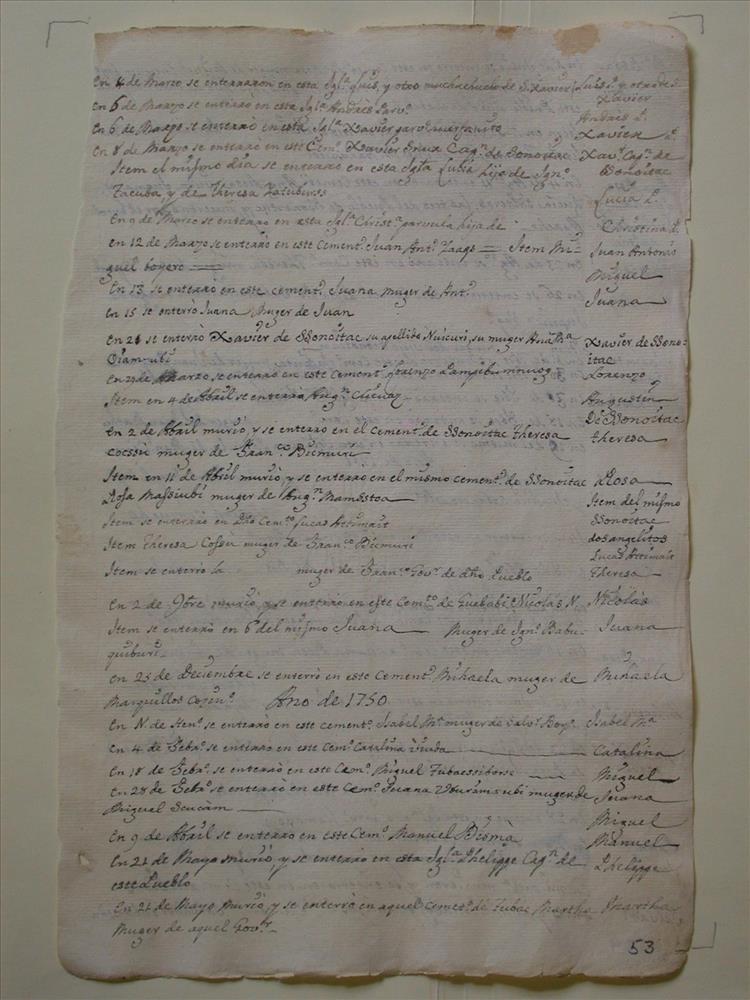 En 4 de Marzo se enterraron en esta Igl.ª Luis, y otro muchachuelo de S. Xavier Luis L. y otro de S.
Xavier
En 6 de Marzo se enterro en esta Igl.ª Andres Parv.º Andres L.
En 6 de Marzo se enterro en esta Igl.ª Xavier parv.º huerfanito Xavier L.
En 8 de Marzo se enterro en este Cem.º Xavier Cap.n de Sonoitac Xav.r Cap.n de
Sonoitac
Item el mismo dia se enterro en esta Igla Lucia hija de Ign.º
Tacuba, y de Theresa Lucia L.
En 9 de Marzo se enterro en esta Igl.ª Christ.ª parvula hija de Christina L.
En 12 de Marzo se enterro en este Cement.º Juan Ant.º Item Mi- Juan Antonio
guel boyero Miguel
En 13 se enterro en este cement.º Juana muger de Ant.º Juana
En 15 se enterro Juana Muger de Juan
En 21 se enterro Xavier de Sonoitac su apellido Nuicuri, su muger Ana M.ª Xavier de Sono-
itac
En de Marzo se enterro en este Cement.º Lorenzo Lorenzo
Item en 4 de Abril se enterro Aug.n Cuevaz Augustin
De Sonoitac
En 2 de Abril murio, y se enterro en el Cement.º de Sonoitac Theresa Theresa
Cocssu muger de Fran.co Bicmuri
Item en 11 de Abril murio, y se enterro en el mismo cement.º de Sonoitac Rosa
Rosa Massiubi muger de Aug.n Mamestoa Item del mismo
Item se enterro en Dho Cem.to Lucas Attimait Sonoitac
dos angelitos
Item Theresa Cossu muger de Fran.co Bicmuri Lucas Attimait
Item se enterro la muger de Fran.co Gov.r de dho Pueblo Theresa
En 2 de 9bre murio, y se enterro en este Cem.to de Guebabi Nicolas N. Nicolas
Item se enterro en 6 del mismo Juana Muger de Ign.º Babu- Juana
quiburi
En 23 de Deciembre se enterro en este Cement.º Mihaela muger de Mihaela
Marquillos
Ano de 1750
En 11 de Hen.º se enterro en este cement.º Isabel M.ª muger de Salv.r Isabel M.ª
En 4 de Febr.º se enterro en este Cem.º Catalina Viuda Catalina
En 18 de Febr.º se enterro en este Cem.º Miguel Tubaessiborse Miguel
En 28 de Febr.º se enterro en este Cem.º Juana muger de Juana
Miguel Miguel
En 9 de Abril se enterro en este Cem.º Manuel Bisma Manuel
En 21 de Mayo murio, y se enterro en esta Igl.ª Phelippe Cap.n de Phelippe
este Pueblo
En 21 de Mayo murio, y se enterro en aquel Cemet.º de Tubac Martha Martha
Muger de aquel Gov.r
53